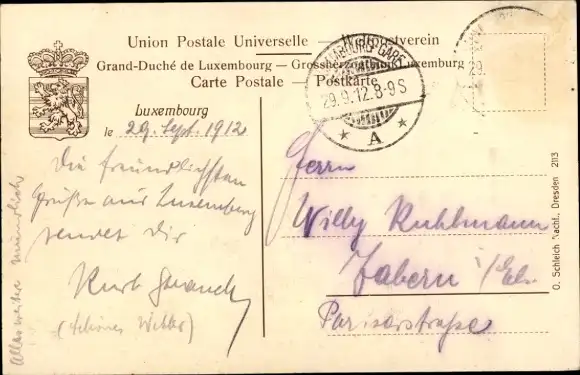 Union Postale Universelle – Weltpostverein
Grand-Duché de Luxembourg – Grossherzogtum Luxemburg
Carte Postale – Postkarte
LUXEMBOURG-GARE
29.9.12.8-9S
A
29.
Luxembourg
le 29. Sept. 1912
Die freundlichsten
Grüße aus Luxemburg
sendet Dir
Kurt
(schönes Wetter)
Alles weitere mündlich
Herrn
Willy Ruhlmann
Zabern i/Els.
Pariserstraße
O. Schleich Nachf., Dresden 2113